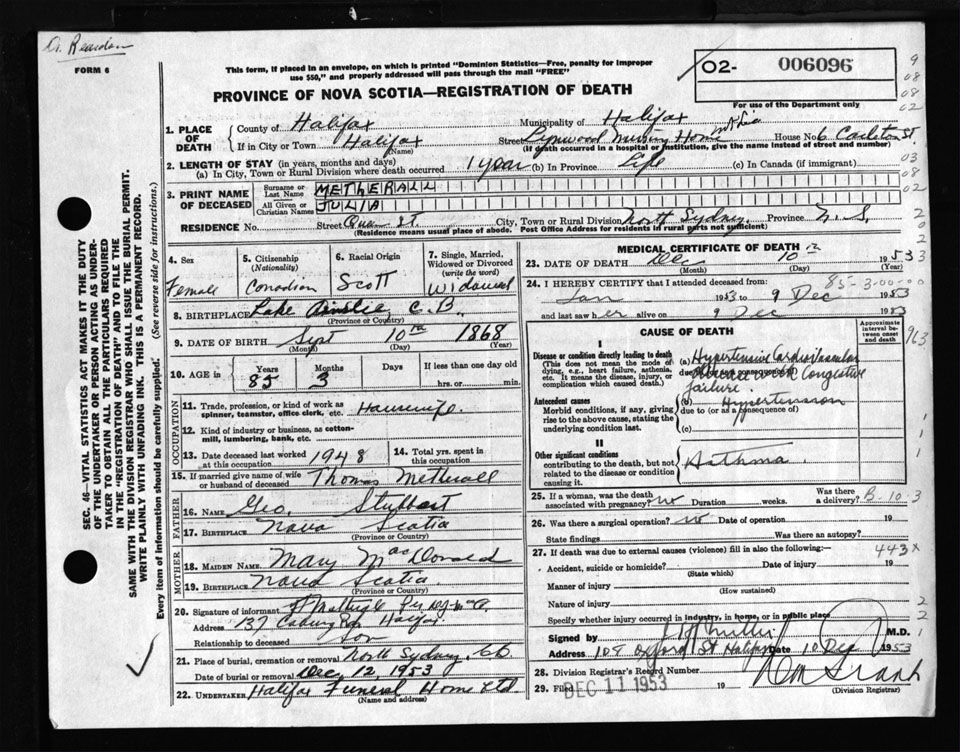 Dr. Reardon
FORM 6
This form, if placed in an envelope, on which is printed "Dominion Statistics—Free, penalty for improper
use $50," and properly addressed will pass through the mail "FREE"
O2- 006096
For use of the Department only
9
08
08
02
PROVINCE OF NOVA SCOTIA—REGISTRATION OF DEATH
1. PLACE OF DEATH
County of Halifax Municipality of Halifax
If in City or Town Halifax (Name) Street Lynwood Nursing Home House No. 6 Carleton St.
(If death occurred in a hospital or institution, give the name instead of street and number)
2. LENGTH OF STAY (in years, months and days)
(a) In City, Town or Rural Division where death occurred 1 year (b) In Province Life (c) In Canada (if immigrant)
03
08
02
3. PRINT NAME OF DECEASED
Surname or Last Name METHERALL
All Given or Christian Names JULIA
RESIDENCE No. Street Queen St. City, Town or Rural Division North Sydney Province N. S.
(Residence means usual place of abode. Post Office Address for residents in rural parts not sufficient)
2
0
2
4. Sex
Female
5. Citizenship (Nationality)
Canadian
6. Racial Origin
Scott
7. Single, Married, Widowed or Divorced (write the word)
Widowed
8. BIRTHPLACE Lake Ainslie, C. B.
(Province or Country)
9. DATE OF BIRTH Sept 10th 1868
(Month) (Day) (Year)
10. AGE in Years Months Days If less than one day
85 3 hrs. or min.
OCCUPATION
11. Trade, profession, or kind of work as spinner, teamster, office clerk, etc. Housewife.
12. Kind of industry or business, as cotton-mill, lumbering, bank, etc.
13. Date deceased last worked at this occupation 1948
14. Total yrs. spent in this occupation
15. If married give name of wife or husband of deceased Thomas Metherall
FATHER
16. NAME Geo. Stubbert
17. BIRTHPLACE Nova Scotia
(Province or Country)
MOTHER
18. MAIDEN NAME Mary MacDonald
19. BIRTHPLACE Nova Scotia
(Province or Country)
20. Signature of informant
Address 137 Halifax
Relationship to deceased Son
21. Place of burial, cremation or removal North Sydney, CB
Date of burial or removal Dec. 12, 1953
22. UNDERTAKER Halifax Funeral Home Ltd.
(Name and address)
MEDICAL CERTIFICATE OF DEATH
23. DATE OF DEATH Dec 10th 1953 3
(Month) (Day) (Year)
24. I HEREBY CERTIFY that I attended deceased from: 85-3-00-00
Jan 1953 to 9 Dec 1953
and last saw her alive on 9 Dec 1953
CAUSE OF DEATH
Approximate interval between onset and death
963
I
Disease or condition directly leading to death
(This does not mean the mode of dying, e.g., heart failure, asthenia, etc. It means the disease, injury, or complication which caused death.)
(a) Hypertensive Cardiovascular disease with Congestive failure
due to (or as a consequence of)
Antecedent causes
Morbid conditions, if any, giving rise to the above cause, stating the underlying condition last.
(b) Hypertension
due to (or as a consequence of)
(c)
II
Other significant conditions
contributing to the death, but not related to the disease or condition causing it.
Asthma.
1
1
1
25. If a woman, was the death associated with pregnancy? no Duration weeks. Was there a delivery? B-10-3
26. Was there a surgical operation? no Date of operation 19
State findings Was there an autopsy?
27. If death was due to external causes (violence) fill in also the following:— 443X
Accident, suicide or homicide? Date of injury 19
(State which)
Manner of injury
(How sustained)
Nature of injury
Specify whether injury occurred in industry, in home, or in public place
2
2
1
Signed by M.D.
Address 109 Oxford St Halifax Date 10 Dec 1953
28. Division Registrar's Record Number
29. Filed DEC 11 1953 19
(Division Registrar)
SEC. 46—VITAL STATISTICS ACT MAKES IT THE DUTY
OF THE UNDERTAKER OR PERSON ACTING AS UNDER-
TAKER TO OBTAIN ALL THE PARTICULARS REQUIRED
IN THE "REGISTRATION OF DEATH" AND TO FILE THE
SAME WITH THE DIVISION REGISTRAR WHO SHALL ISSUE THE BURIAL PERMIT.
WRITE PLAINLY WITH UNFADING INK. THIS IS A PERMANENT RECORD.
Every item of information should be carefully supplied. (See reverse side for instructions.)